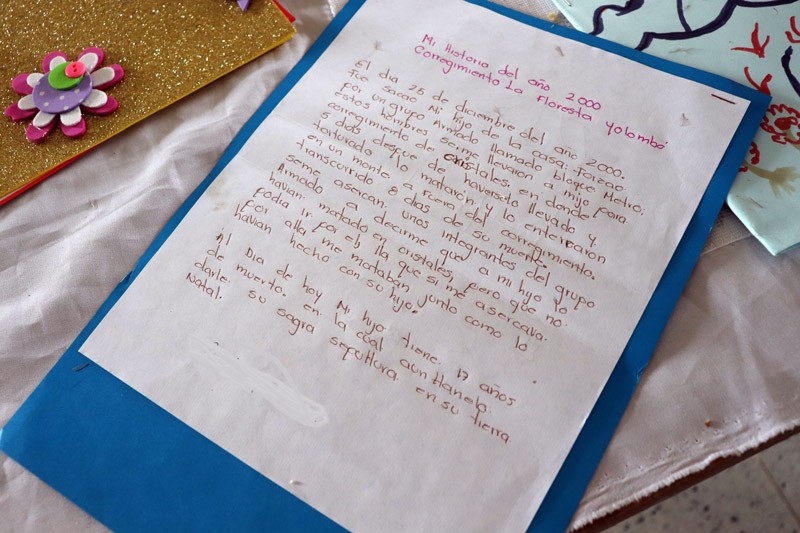 Mi Historia del año 2000
Corregimiento La Floresta Yolombó
El dia 25 de diciembre del año 2000.
fue sacae Mi hijo de la casa. Forzao
por un grupo Armado llamado bloque Metro,
estos hombres serme llevaron a mijo para
corregimiento de Cristales, en donde
5 dias despue de haverselo llevado y
torturado lo mataron y lo enterraron
en un monte a fuera del corregimiento.
transcurrido 8 dias de su muerte
seme asercan unos integrantes del grupo
Armado a decirme que a mi hijo lo
havian matado en cristales, pero que no
podia ir por el, ya que si me asercava
por alla me mataban junto como lo
havian hecho con su hijo.
Al Dia de hoy Mi hijo tiene 17 años
de muerto. en la cual aun Hanelo
darle su sagra sepulttura en su tierra
Natal.